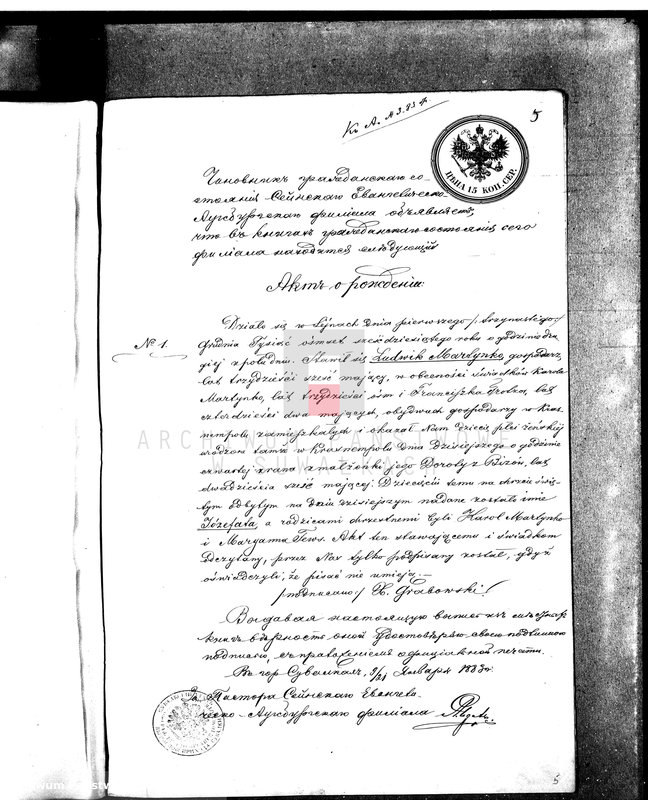 Къ А. № 3. 83 г.
5
ЦѢНА 15 КОП. СЕР.
Чиновникъ гражданскаго со-
стоянія Сейнскаго Евангелическо-
Аугсбургскаго филіала объявляетъ,
что въ книгахъ гражданскаго состоянія сего
филіала находится слѣдующій
Актъ о рожденіи:
№ 1.
Działo się w Sejnach dnia pierwszego /:trzynastego:/
Grudnia Tysiąc ośmset sześćdziesiątego roku o godzinie dru-
giej z południa. Stawił się Ludwik Martynko, gospodarz,
lat trzydzieści sześć mający, w obecności świadków Karola
Martynko, lat trzydzieści ośm i Franciszka Grotza, lat
czterdzieści dwa mających, obydwóch gospodarzy w Kras-
nempolu zamieszkałych i okazał Nam dziecię płci żeńskiej
urodzone tamże w Krasnempolu dnia dzisiejszego o godzinie
czwartej zrana z małżonki jego Doroty z lat
dwadzieścia sześć mającej. Dziecięciu temu na chrzcie świę-
tym odbytym na dniu dzisiejszym nadane zostało imie
Józefata, a rodzicami chrzestnemi byli Karol Martynko
i Maryanna Tews. Akt ten stawającemu i świadkom
odczytany, przez Nas tylko podpisany został, gdyż
oświadczyli, że pisać nie umieją.—
/podpisano:/ X. Grabowski/
Выдавая настоящую выпись изъ
книгъ вѣрность оной удостовѣряю своею подписью
съ приложеніемъ оффиціальной печати.
Въ гор. Сувалкахъ, 9/21 Января 1883 г.
За Пастора Сейнскаго Евангели-
ческо-Аугсбургскаго филіала
ARCHIWUM PAŃSTWOWE
W SUWAŁKACH
5